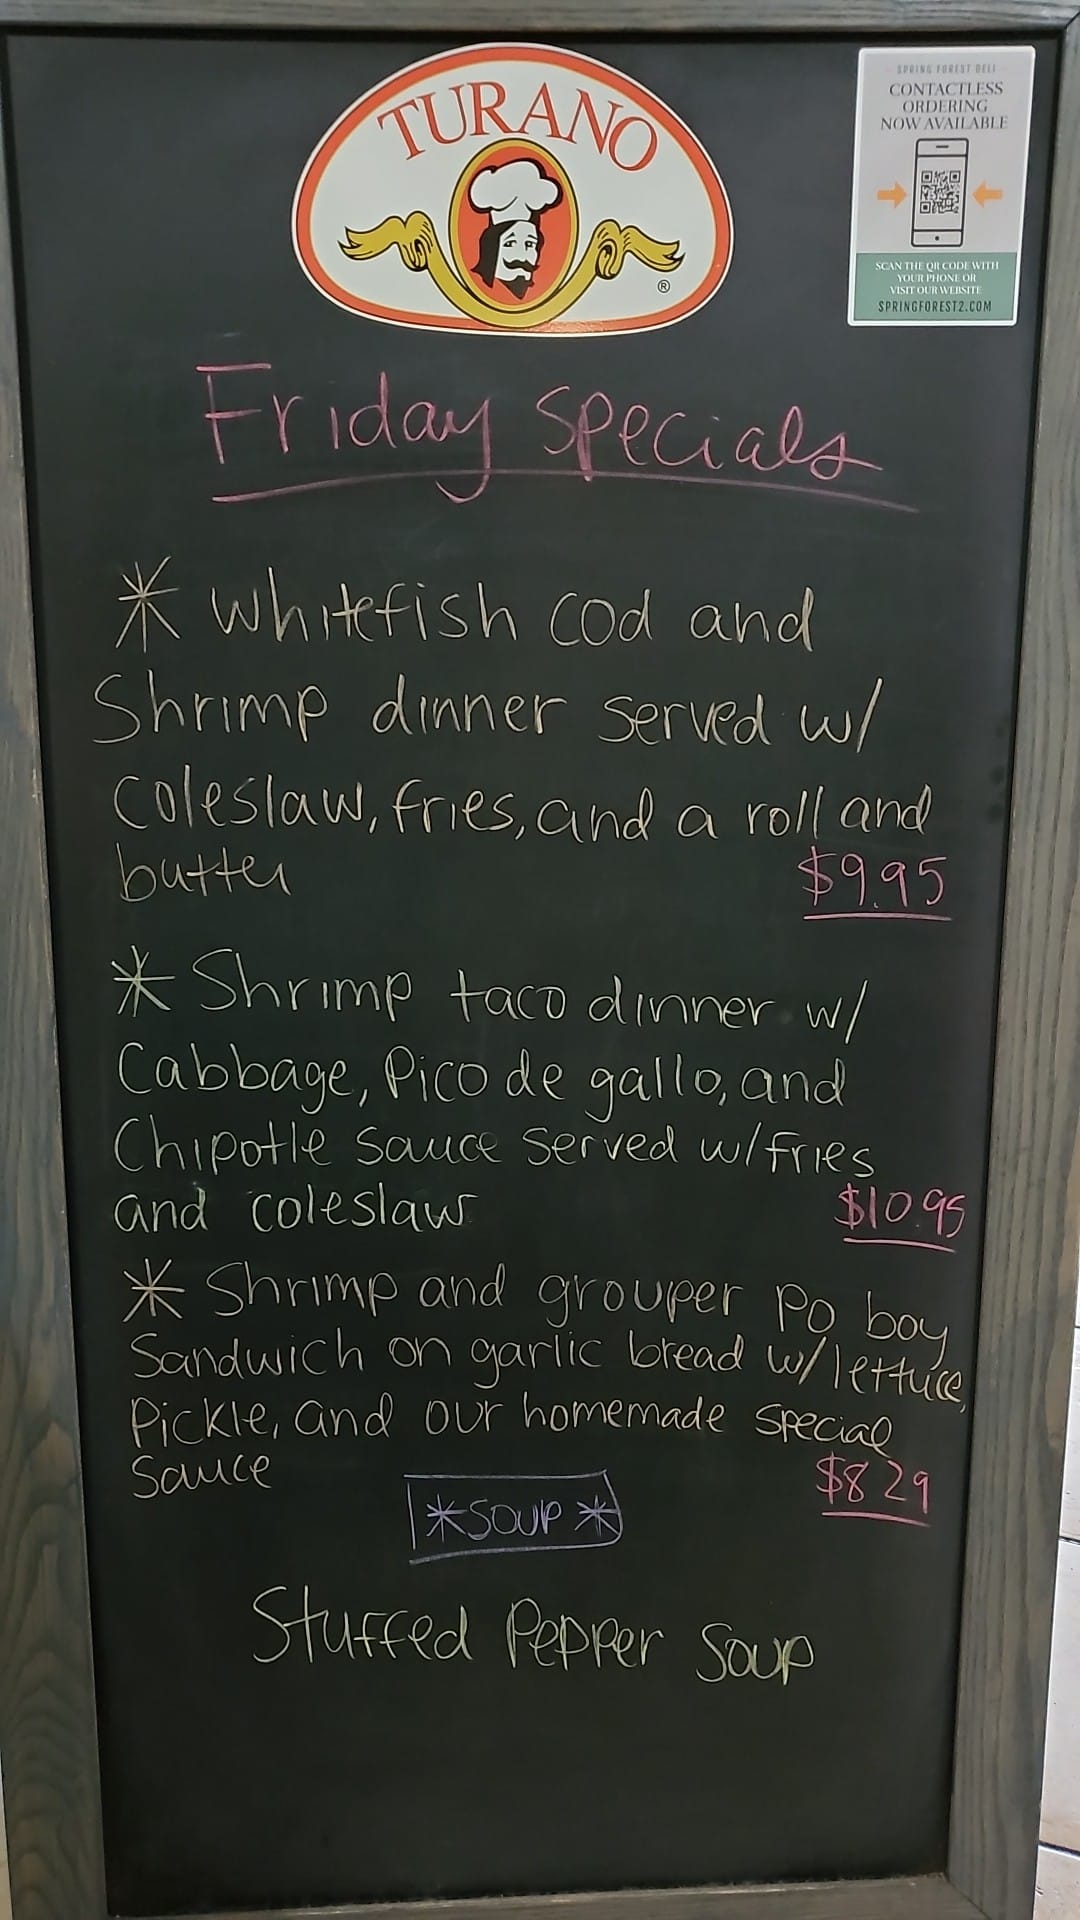 TURANO
®
SPRING FOREST DELI
CONTACTLESS
ORDERING
NOW AVAILABLE
SCAN THE QR CODE WITH
YOUR PHONE OR
VISIT OUR WEBSITE
SPRINGFOREST2.COM
Friday specials
* Whitefish cod and
Shrimp dinner served w/
Coleslaw, fries, and a roll and
butter $9.95
* Shrimp taco dinner w/
Cabbage, Pico de gallo, and
Chipotle sauce served w/fries
and coleslaw $10.95
* Shrimp and grouper Po boy
Sandwich on garlic bread w/lettuce,
Pickle, and our homemade special
Sauce $8 29
*SOUP*
Stuffed Pepper Soup